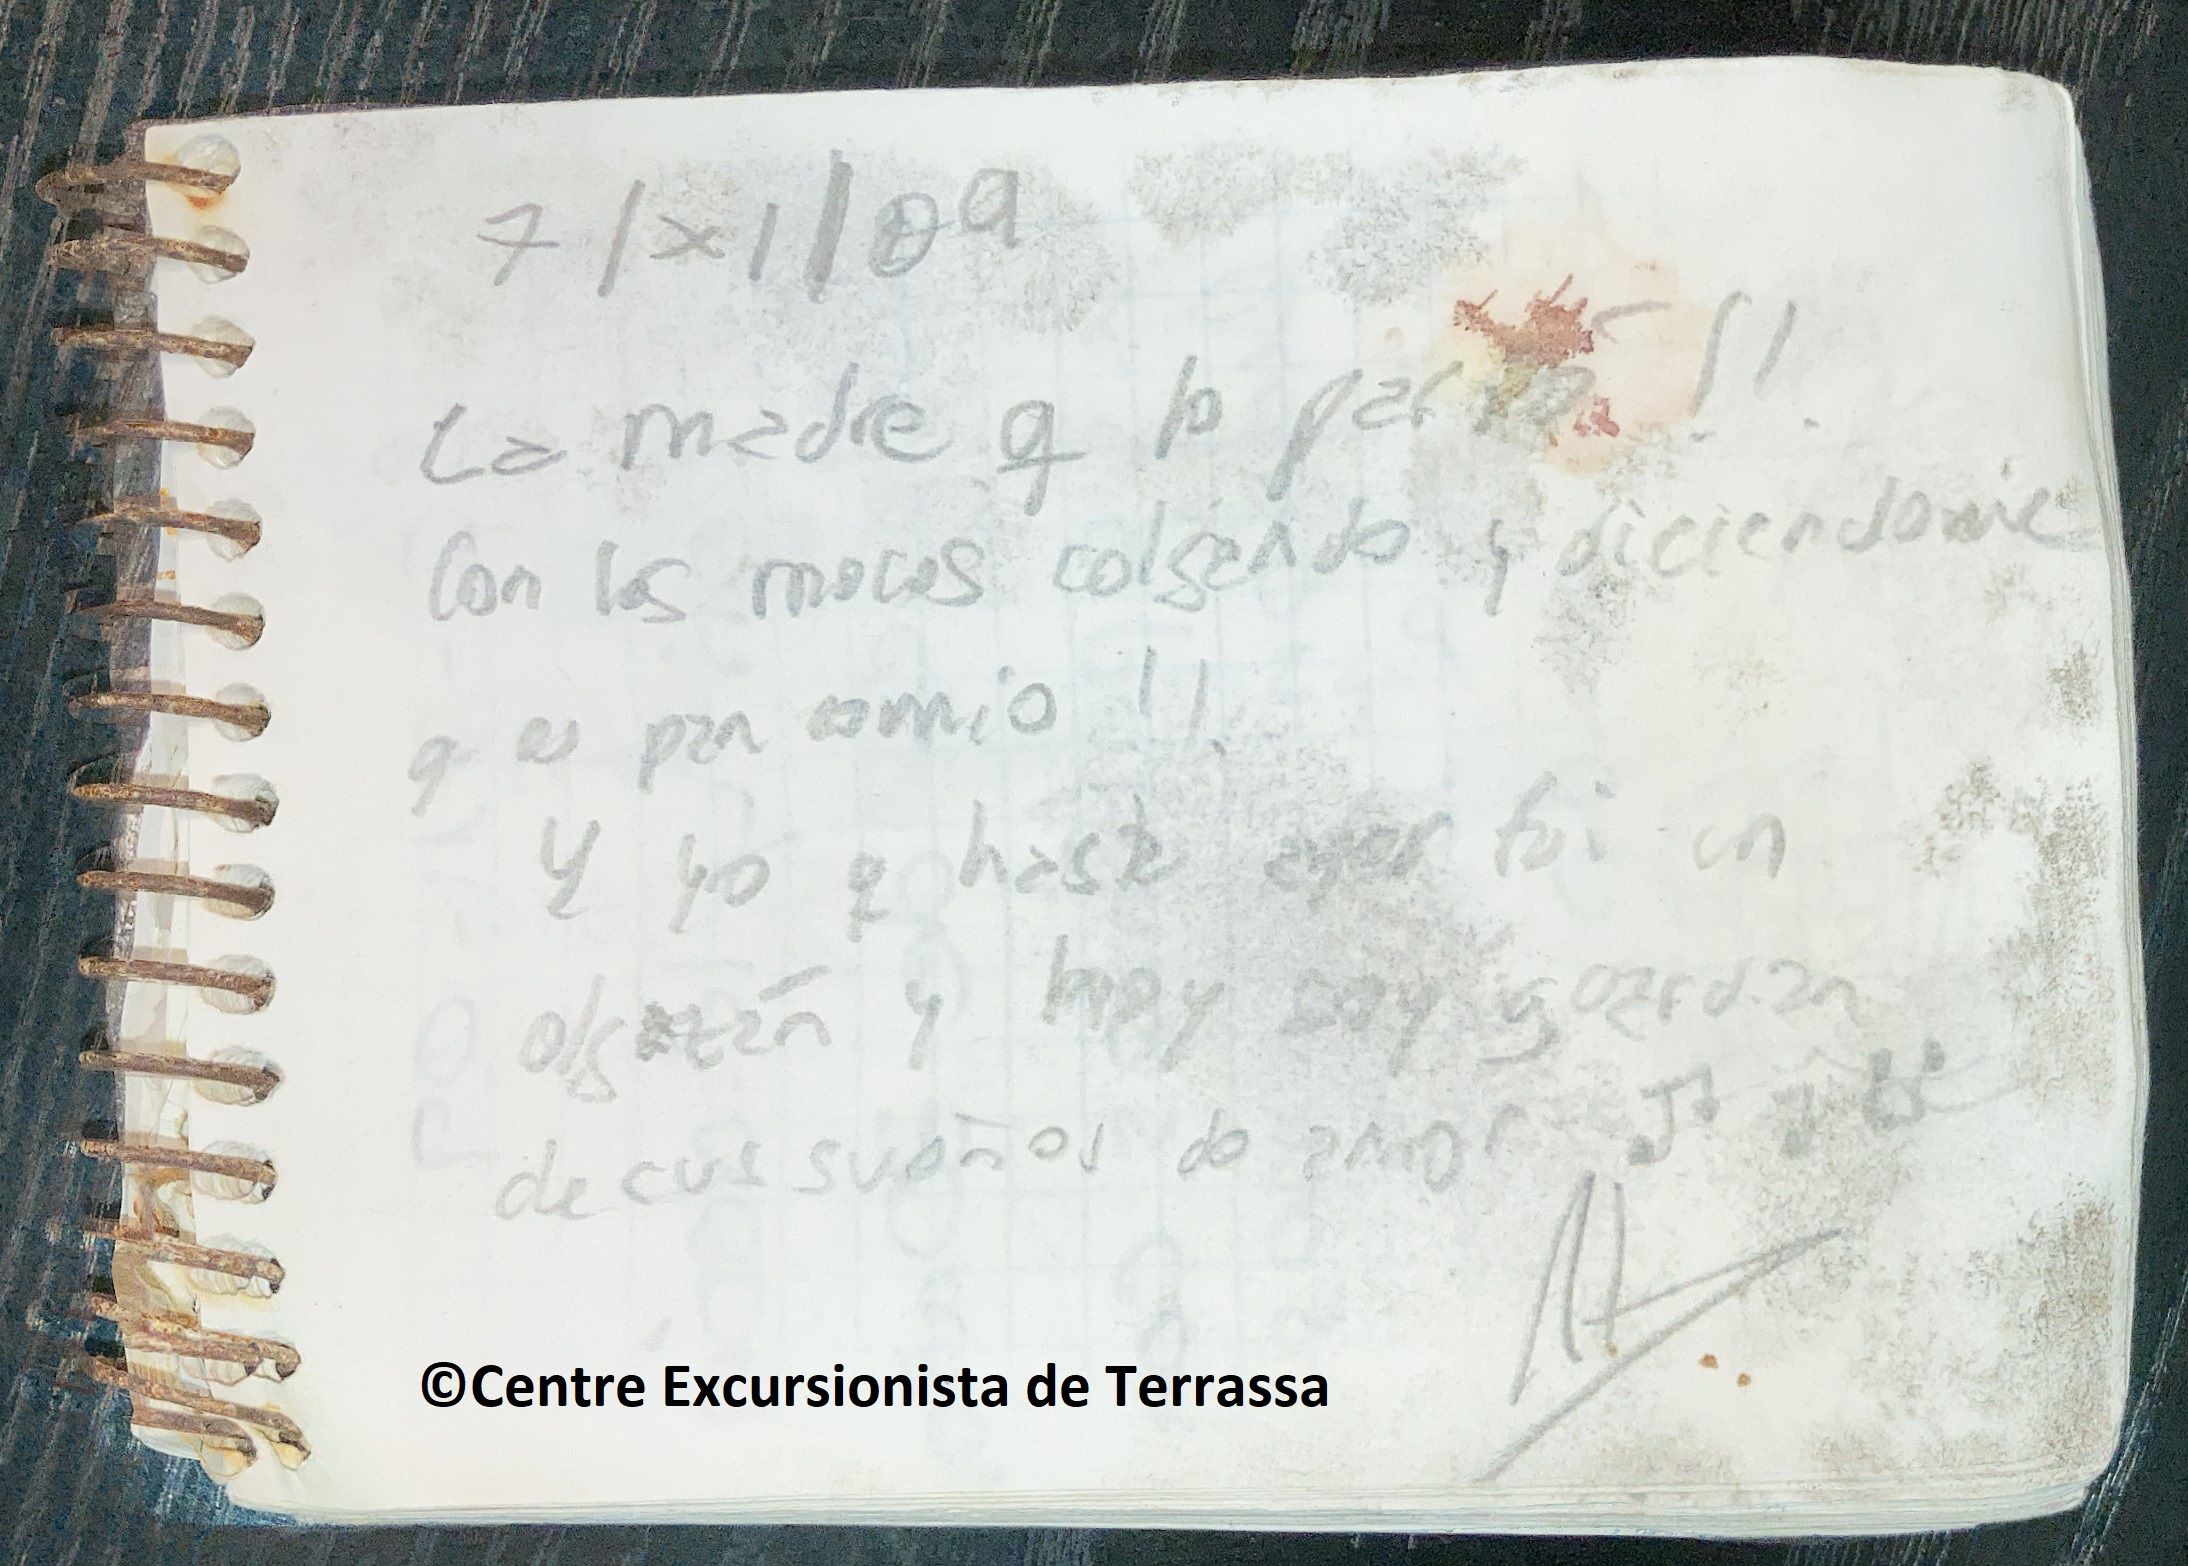 7/XI/09
La madre q lo parió!!
Con los mocos colgando y diciendome
q es pan comio!!
Y yo q hasta ayer fui un
y hoy soy guardian
de sus sueños de amor
©Centre Excursionista de Terrassa